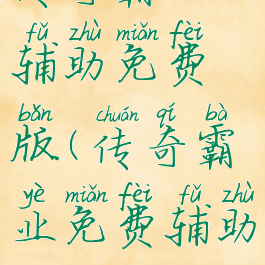 fǔ zhù miǎn fèi
辅助免费
bǎn chuán qí bà
版(传奇霸
yè miǎn fèi fǔ zhù
业免费辅助